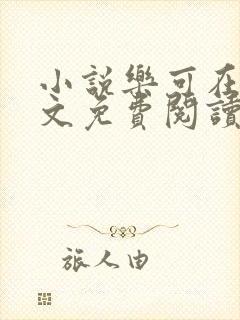 小説樂可在
文免費閱讀
旅人由